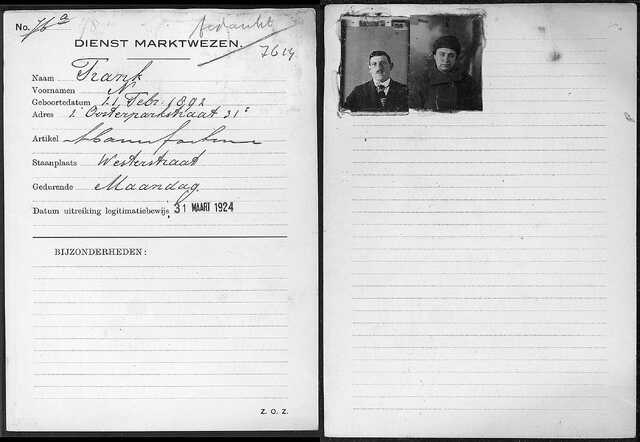 No. 76a
DIENST MARKTWEZEN.
7614
Naam Frank
Voornamen N.
Geboortedatum 21 Febr. 1892
Adres 2e Oosterparkstraat 31c
Artikel Manufacturen
Staanplaats Westerstraat
Gedurende Maandag
Datum uitreiking legitimatiebewijs 31 MAART 1924
BIJZONDERHEDEN:
Z. O. Z.